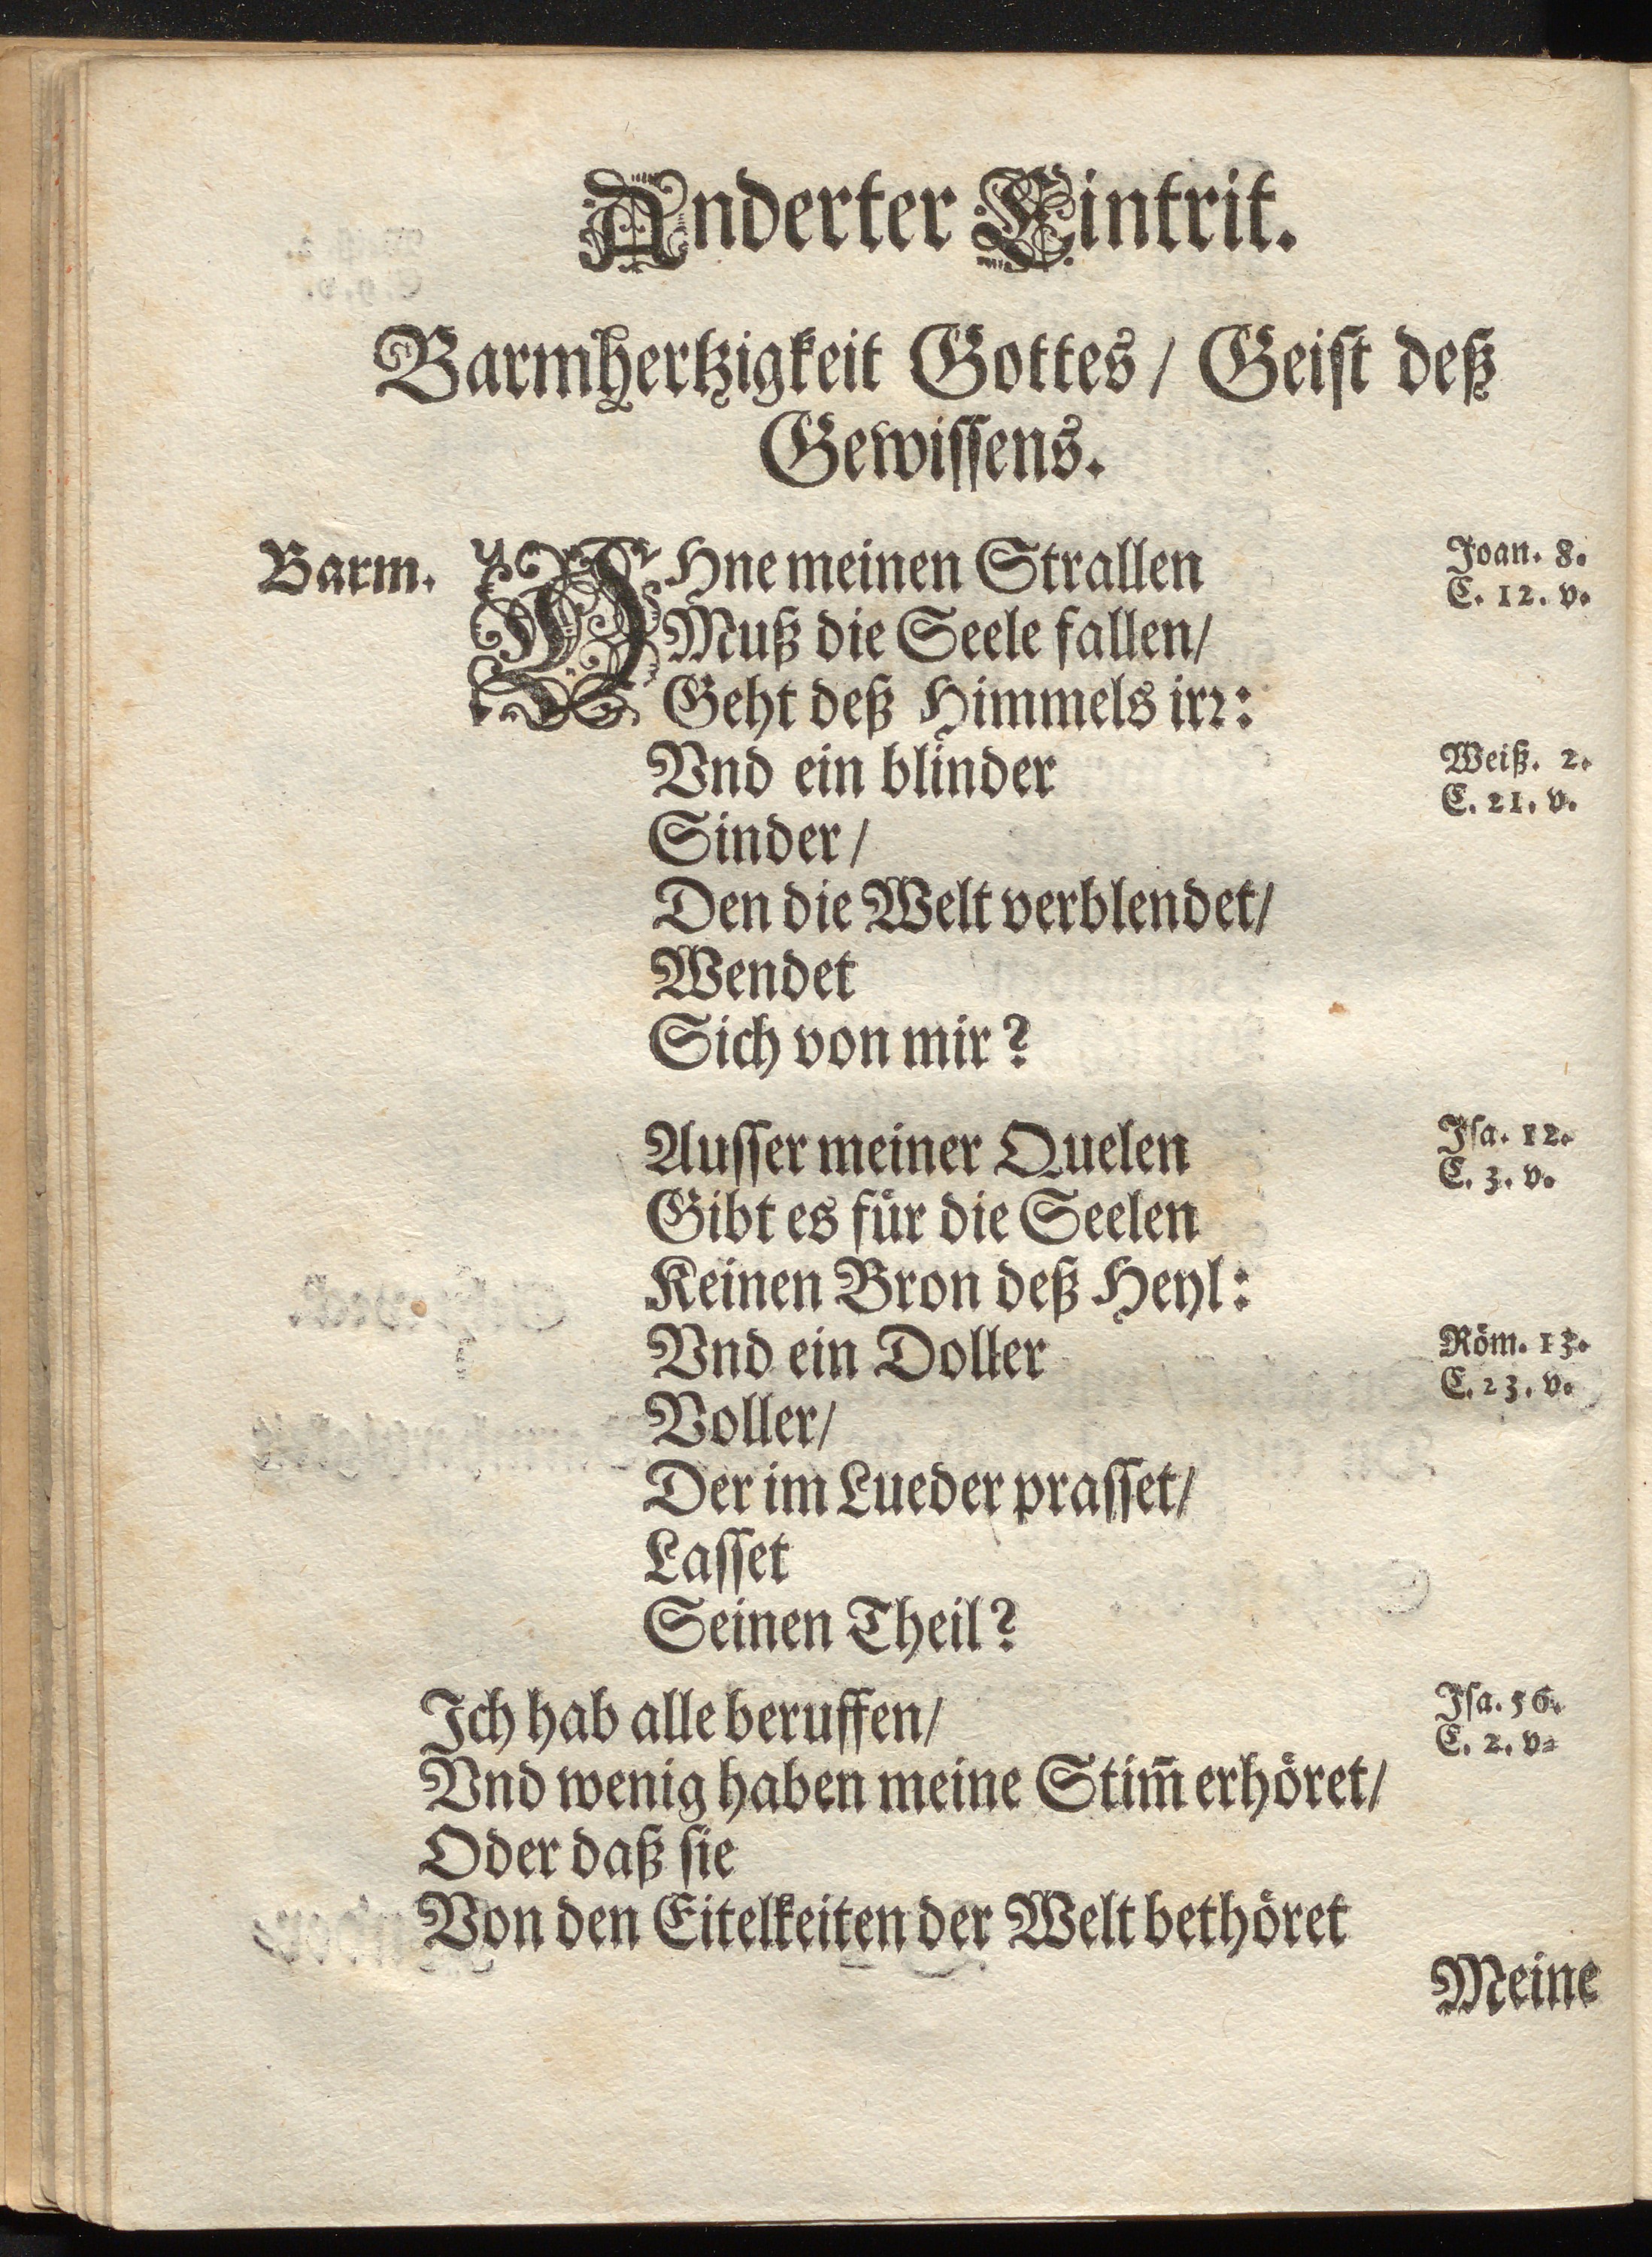 Anderter Eintrit.
Barmhertzigkeit Gottes / Geist deß
Gewissens.
Barm. OHne meinen Strallen
Joan. 8.
C. 12. v.
Muß die Seele fallen/
Geht deß Himmels irr:
Vnd ein blinder
Weiß. 2.
C. 21. v.
Sinder /
Den die Welt verblendet/
Wendet
Sich von mir?
Ausser meiner Quelen
Isa. 12.
C. 3. v.
Gibt es für die Seelen
Keinen Bron deß Heyl:
Vnd ein Doller
Röm. 13.
C. 23. v.
Voller/
Der im Lueder prasset/
Lasset
Seinen Theil?
Ich hab alle beruffen/
Isa. 56.
C. 2. v.
Vnd wenig haben meine Stim̄ erhöret/
Oder daß sie
Von den Eitelkeiten der Welt bethöret
Meine